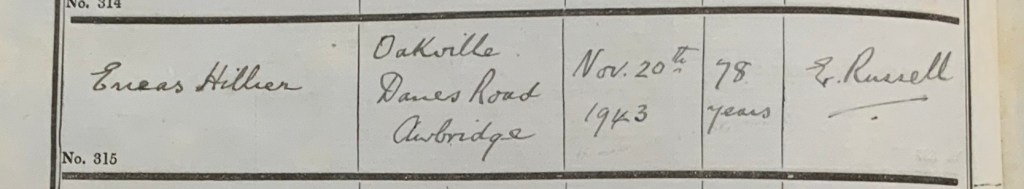 No. 314
Eneas Hillier
Oakville
Danes Road
Awbridge
Nov. 20th
1943
78
years
E. Russell
No. 315